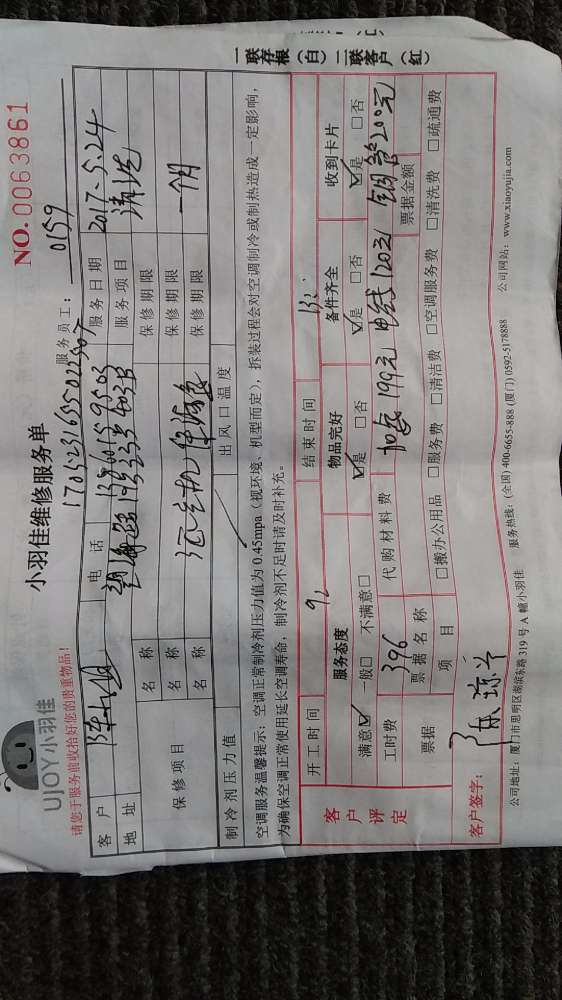 UJOY小羽佳
小羽佳维修服务单
NO. 0063861
请您于服务前收拾好您的贵重物品!
服务员工: 0159
客户 电话 服务日期 2017.5.24
地址 403B 服务项目 清洗
保修项目
名称 保修期限
名称 保修期限
名称 保修期限 一个月
制冷剂压力值 出风口温度
空调服务温馨提示: 空调正常制冷剂压力值为0.45mpa(视环境、机型而定), 拆装过程会对空调制冷或制热造成一定影响,
为确保空调正常使用延长空调寿命, 制冷剂不足时请及时补充。
一联存根(白) 二联客户(红)
客户评定
开工时间 结束时间
服务态度 物品完好 备件齐全 收到卡片
满意☑ 一般□ 不满意□ ☑是 □否 ☑是 □否 ☑是 □否
工时费 396 代购材料费 加氟199元 电线120元 铜管200元
票据 票据名称 票据金额
项目 □搬办公用品 □服务费 □清洁费 □空调服务费 □清洗费 □疏通费
客户签字:
公司地址: 厦门市思明区湖滨东路319号A幢小羽佳 服务热线: (全国) 400-6655-888 (厦门) 0592-5178888 公司网站: www.xiaoyujia.com